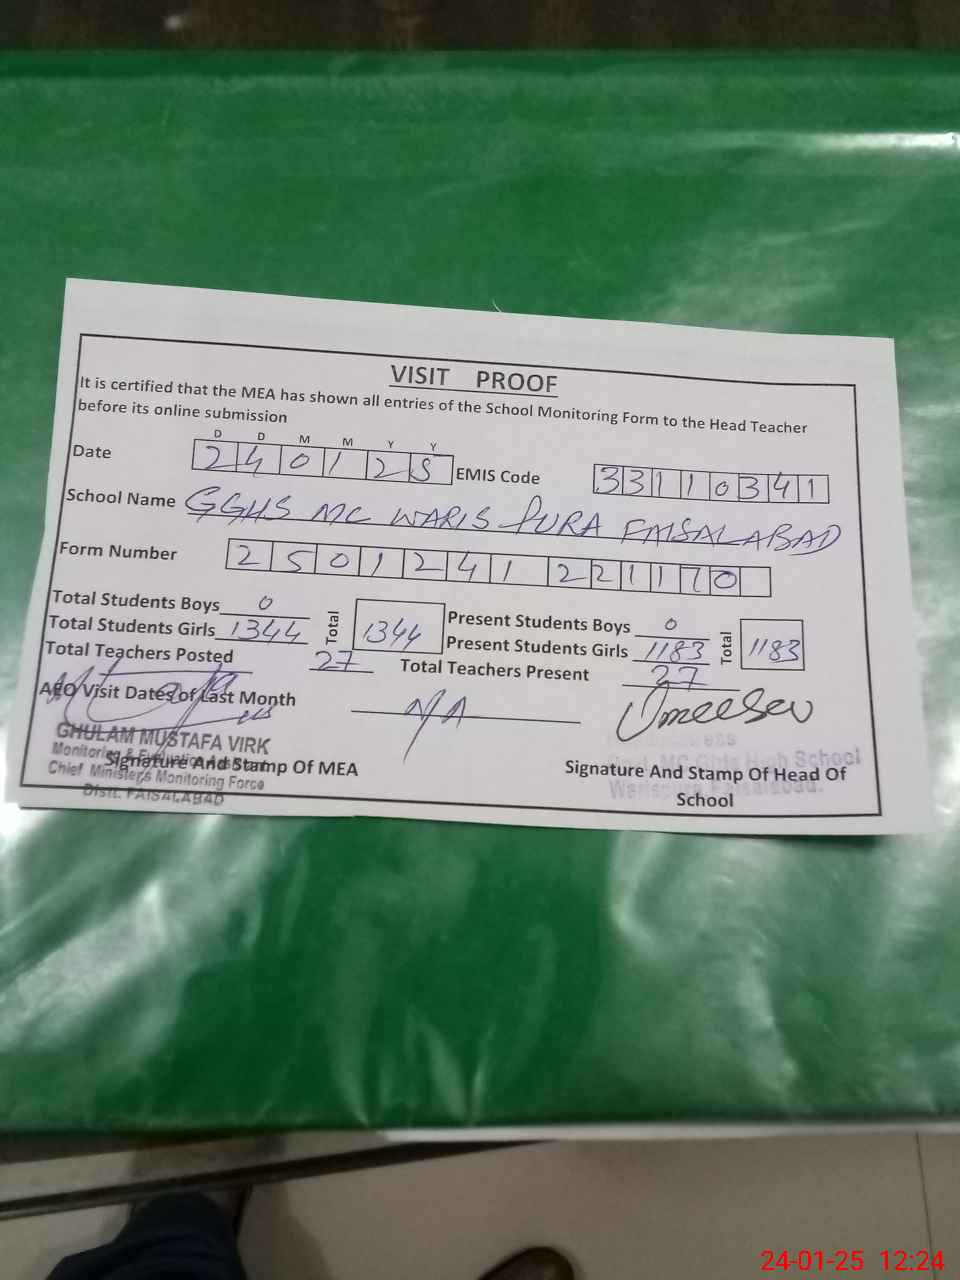 VISIT PROOF
It is certified that the MEA has shown all entries of the School Monitoring Form to the Head Teacher
before its online submission
D D M M Y Y
Date 2 4 0 1 2 5 EMIS Code 3 3 1 1 0 3 4 1
School Name GGHS MC WARIS PURA FAISALABAD
Form Number 2 5 0 1 2 4 1 2 2 1 1 7 0
Total Students Boys 0 Total 1344 Present Students Boys 0 Total 1183
Total Students Girls 1344 Present Students Girls 1183
Total Teachers Posted 27 Total Teachers Present 27
AEO Visit Dates of Last Month N/A
GHULAM MUSTAFA VIRK
Monitoring & Evaluation
Signature And Stamp Of MEA
Chief Minister's Monitoring Force
Distt. FAISALABAD
Girls High School
Signature And Stamp Of Head Of
School
Warispura Faisalabad.
24-01-25 12:24